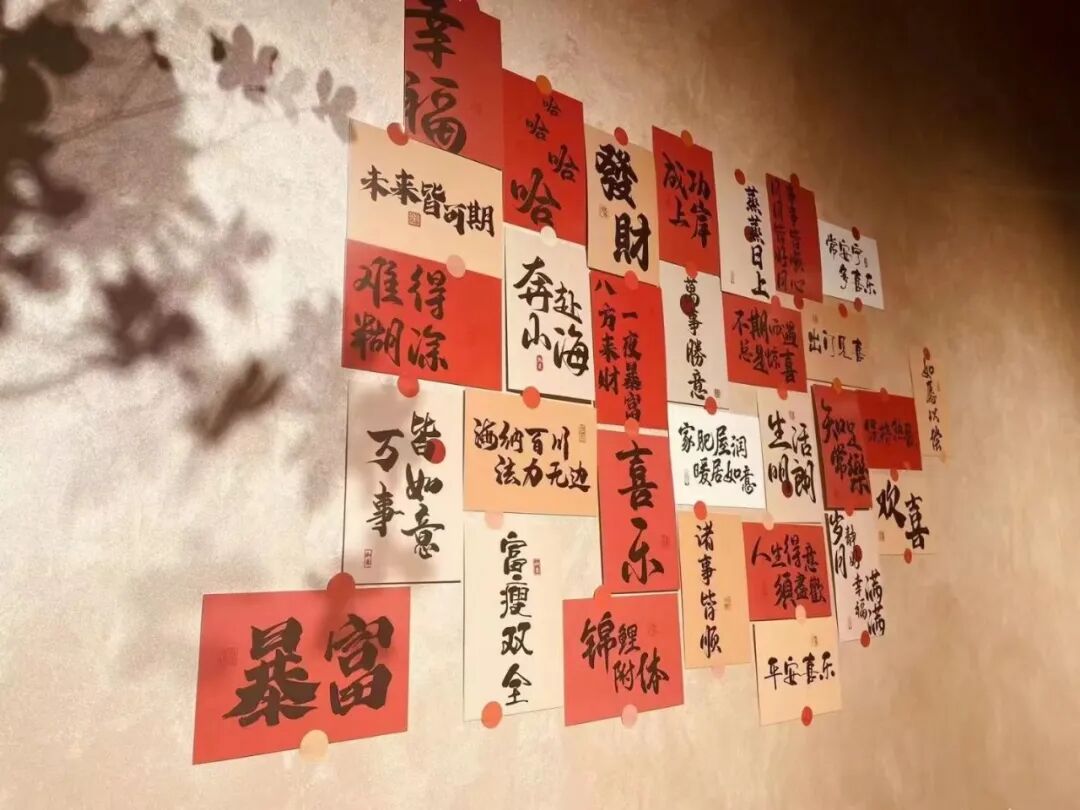 幸福
哈哈哈哈
未来皆可期
發財
成功
上岸
蒸蒸日上
常安宁
多喜乐
难得
糊涂
奔赴
山海
一夜暴富
八方来财
萬事勝意
不期而遇
总是惊喜
出门见喜
皆如意
万事
海纳百川
法力无边
喜乐
家肥屋润
暖居如意
生活
明朗
知足
常樂
保持热爱
欢喜
暴富
富瘦双全
锦鲤
附体
诸事皆顺
人生得意
須盡歡
岁月静好
幸福满满
平安喜乐